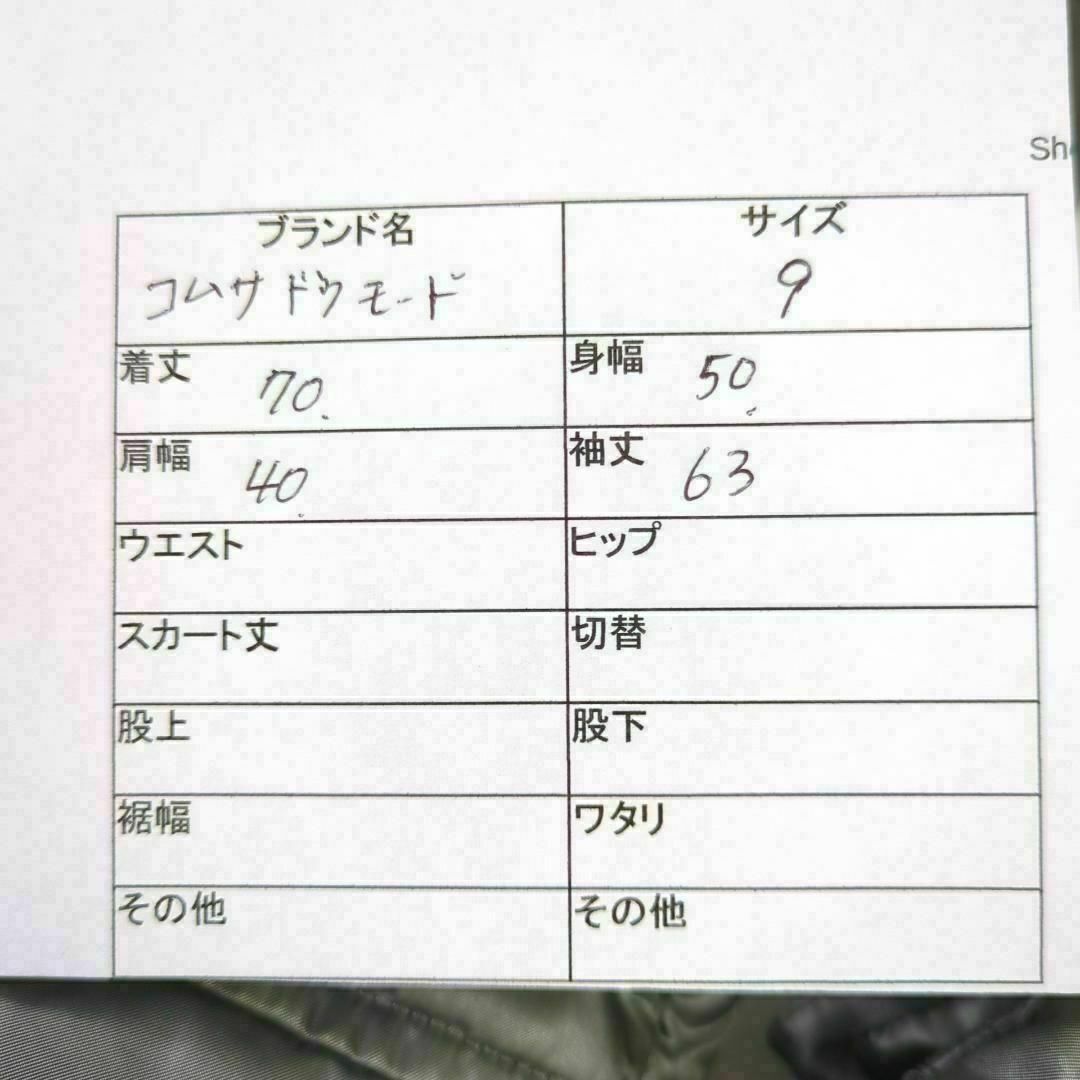 Sh
ブランド名 サイズ
コムサドウモード 9
着丈 70. 身幅 50.
肩幅 40. 袖丈 63
ウエスト ヒップ
スカート丈 切替
股上 股下
裾幅 ワタリ
その他 その他